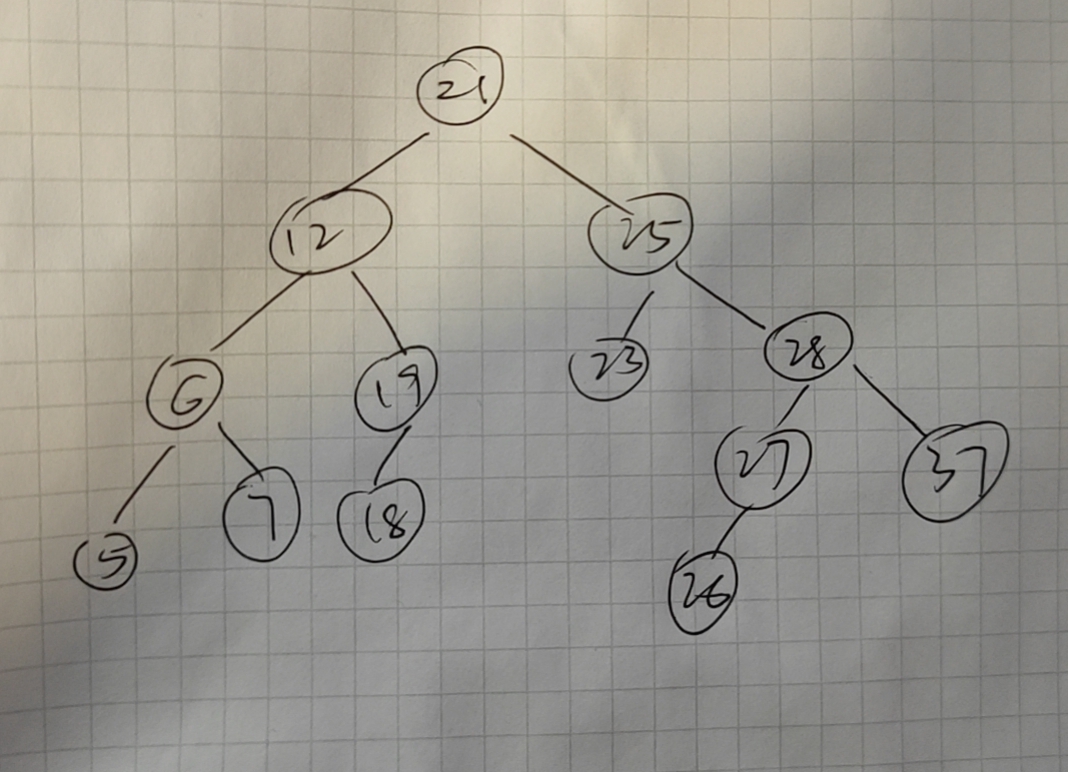 21
12 25
6 19 23 28
5 7 18 27 37
26